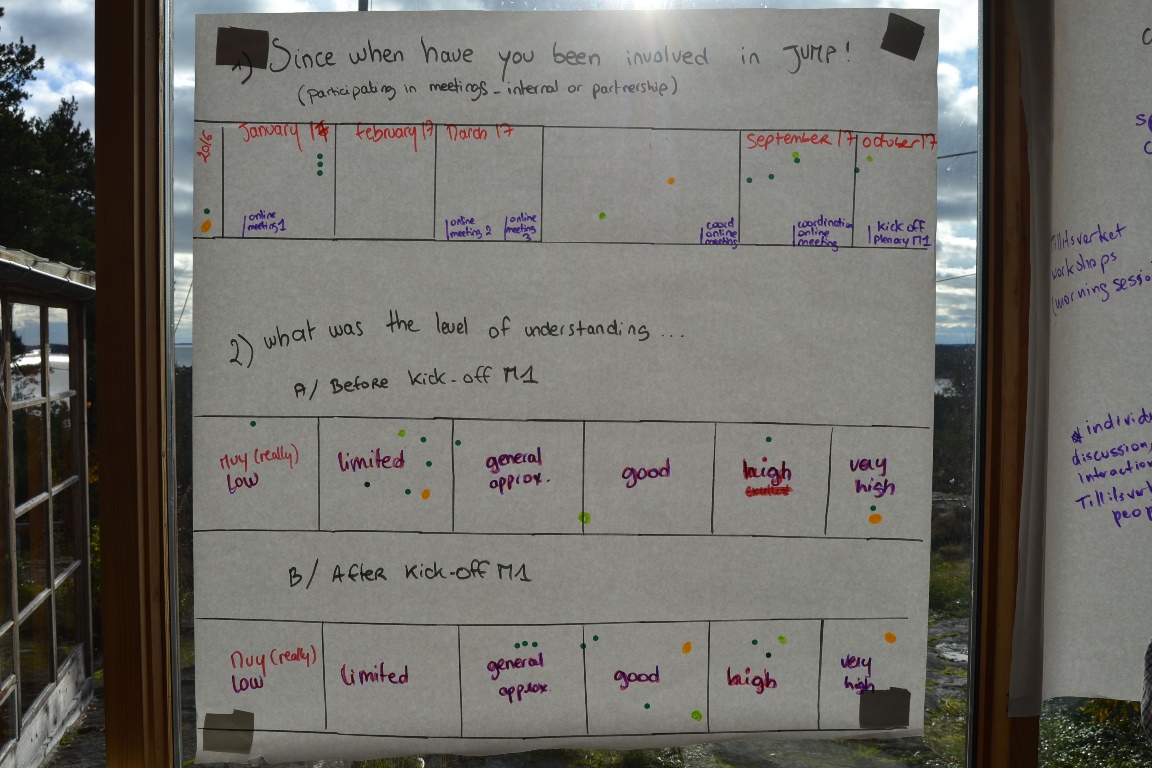 1) Since when have you been involved in JUMP!
(participating in meetings - internal or partnership)
2016
January 17
February 17
March 17
September 17
October 17
online
meeting 1
online
meeting 2
online
meeting
3
coord
online
meeting
coordination
online
meeting
kick off
plenary M1
2) what was the level of understanding ...
A/ Before kick-off M1
Muy (really)
Low
limited
general
approx.
good
high
very
high
B/ After kick-off M1
Muy (really)
Low
limited
general
approx.
good
high
very
high
Tillitsverket
workshops
(morning sessio
individ
discussion,
Interaction
Tillitsverk
peop